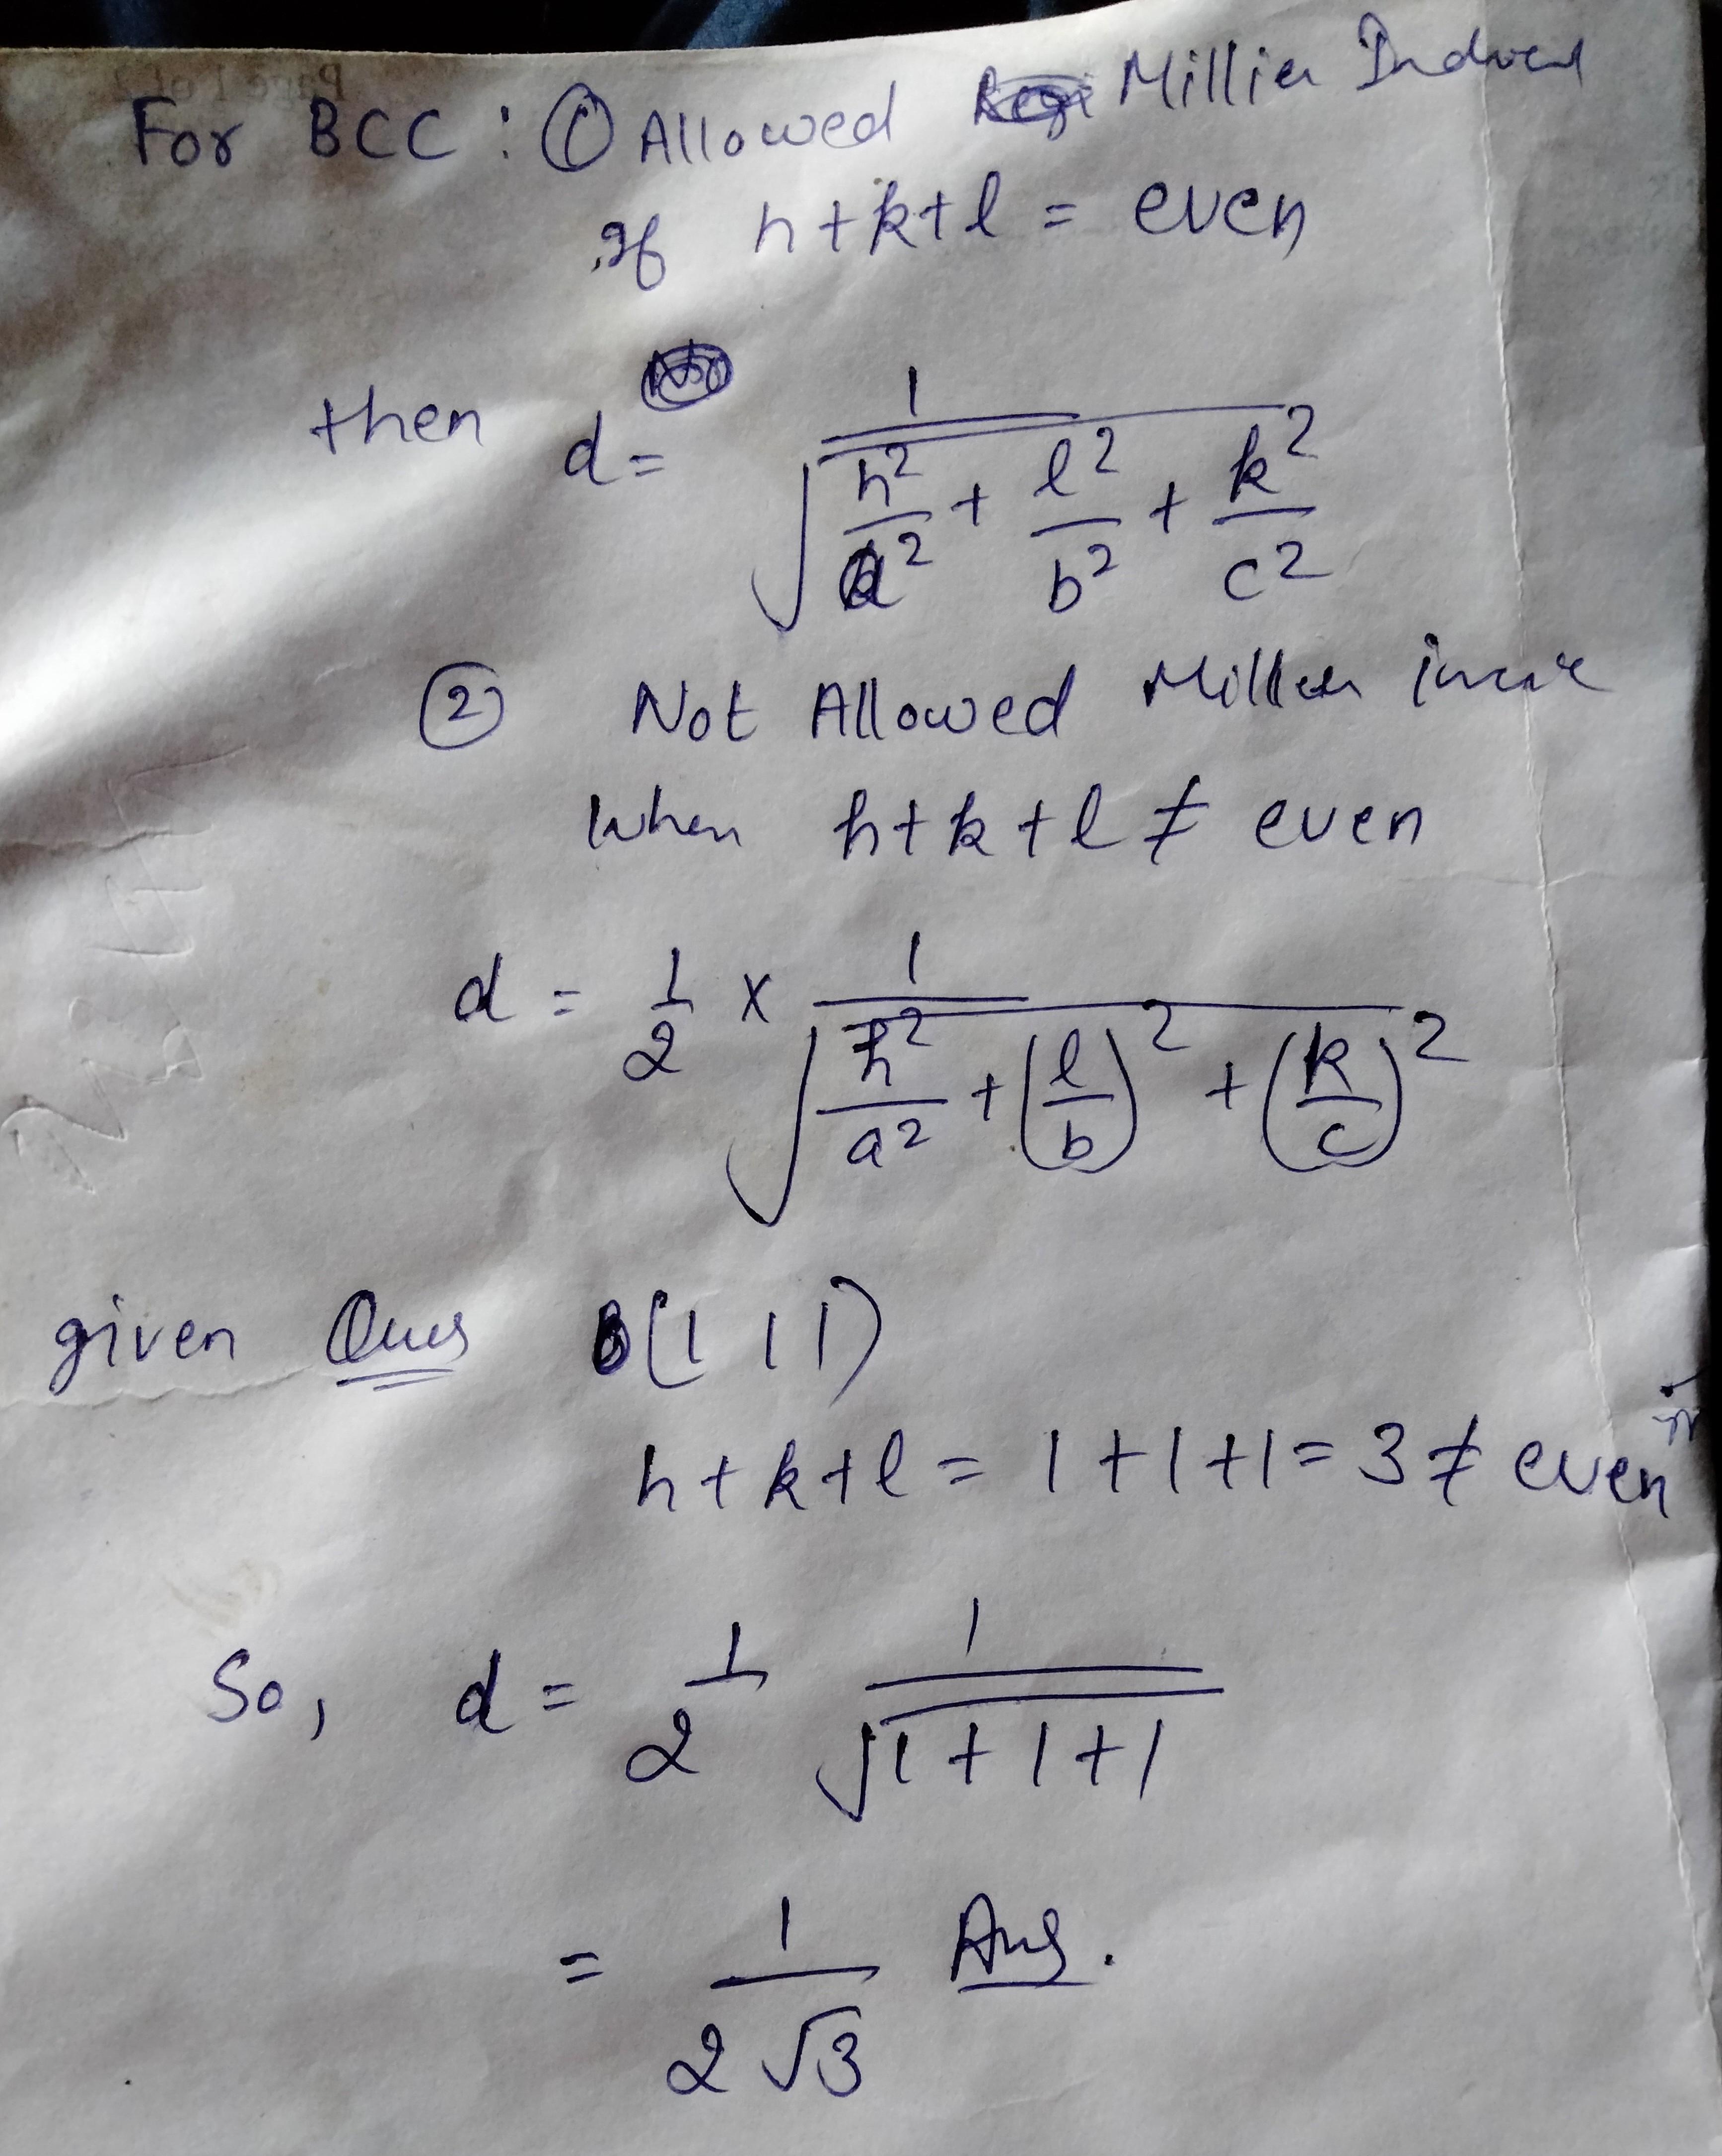 For BCC : ① Allowed Millier Indices
If h+k+l = even
then d = 1 / √(h²/a² + l²/b² + k²/c²)
② Not Allowed Miller
When h+k+l ≠ even
d = 1/2 × 1 / √(h²/a² + (l/b)² + (k/c)²)
given Ques (1 1 1)
h+k+l = 1+1+1 = 3 ≠ even
So, d = 1/2 1/√(1+1+1)
= 1/(2√3) Ans.